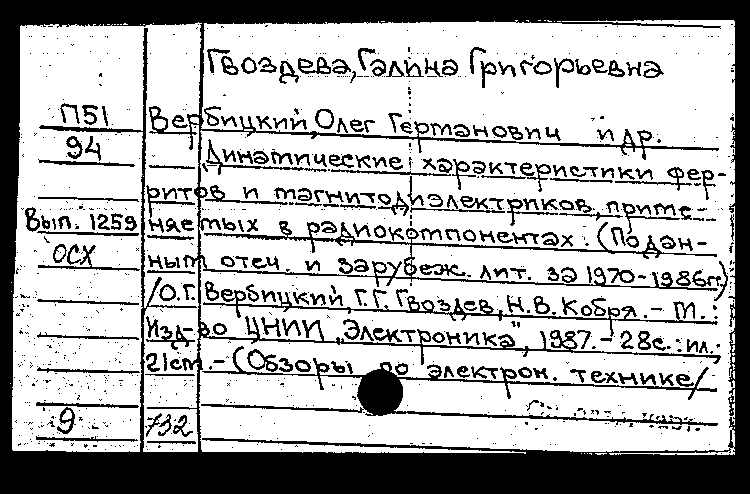 Гвоздева, Галина Григорьевна
П51 Вербицкий, Олег Германович и др.
94 Динамические характеристики фер-
ритов и магнитодиэлектриков, приме-
Вып. 1259 няемых в радиокомпонентах. (По дан-
ОСХ ным отеч. и зарубеж. лит. за 1970-1986гг.)
/О.Г. Вербицкий, Г.Г. Гвоздев, Н.В. Кобря. - М.:
Изд-во ЦНИИ „Электроника", 1987. - 28с.: ил.;
21см. - (Обзоры по электрон. технике/
См. карт.
9 732